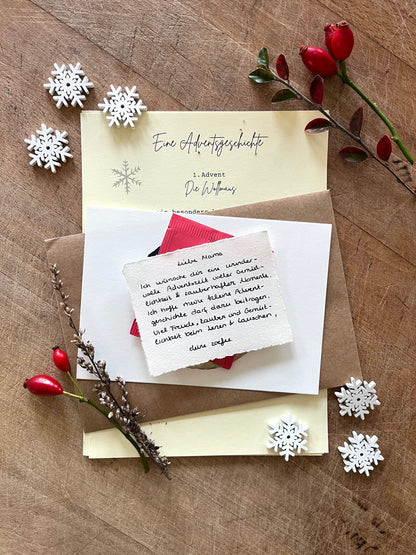 Eine Adventsgeschichte
1. Advent
Die Wollmaus
besonders
Liebe Mama
Ich wünsche dir eine wunder-
volle Adventszeit voller Gemüt-
lichkeit & zauberhafter Momente.
Ich hoffe meine kleine Advent-
geschichte darf dazu beitragen.
Viel Freude, Zauber und Gemüt-
lichkeit beim Lesen & Lauschen,
deine Sofie